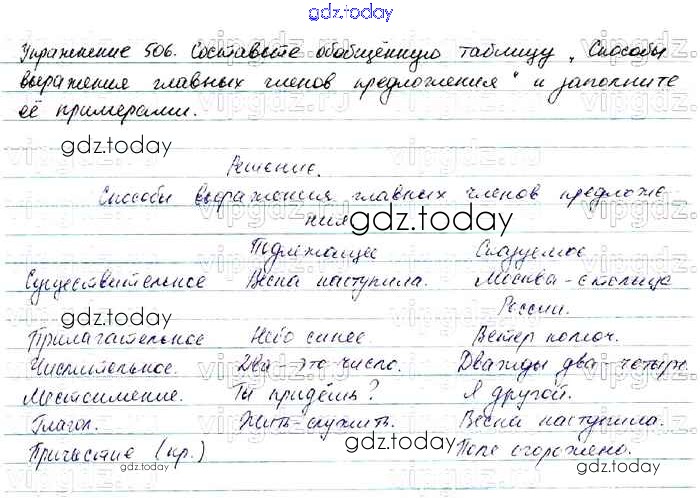 gdz.today
Упражнение 506. Составьте обобщённую таблицу „Способы
выражения главных членов предложения" и заполните
её примерами.
gdz.today
Решение.
Способы выражения главных членов предложе
ния
gdz.today
Подлежащее Сказуемое
Существительное Весна наступила. Москва - столица
России.
gdz.today
Прилагательное Небо синее Ветер колюч.
Числительное. Два - это число. Дважды два - четыре.
Местоимение. Ты придёшь? Я другой.
Глагол. Жить - служить. Весна наступила.
gdz.today
Причастие (кр.) Поле огорожено.
gdz.today
gdz.today